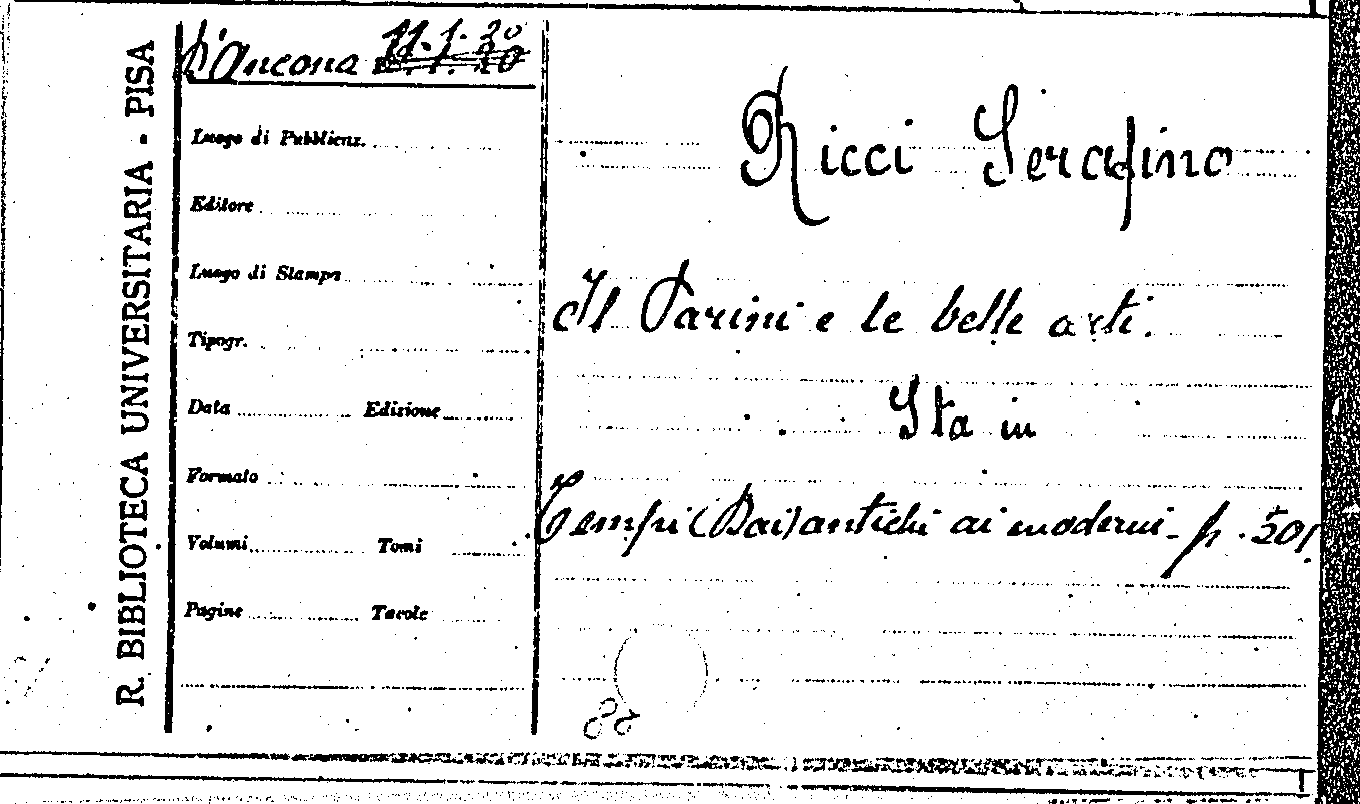 R. BIBLIOTECA UNIVERSITARIA - PISA
D'Ancona 11.1.20
Luogo di Pubblicaz.
Editore
Luogo di Stampa
Tipogr.
Data Edizione
Formato
Volumi Tomi
Pagine Tavole
Ricci Serafino
Il Parini e le belle arti.
Sta in
Tempi (Dai) antichi ai moderni - p. 501.